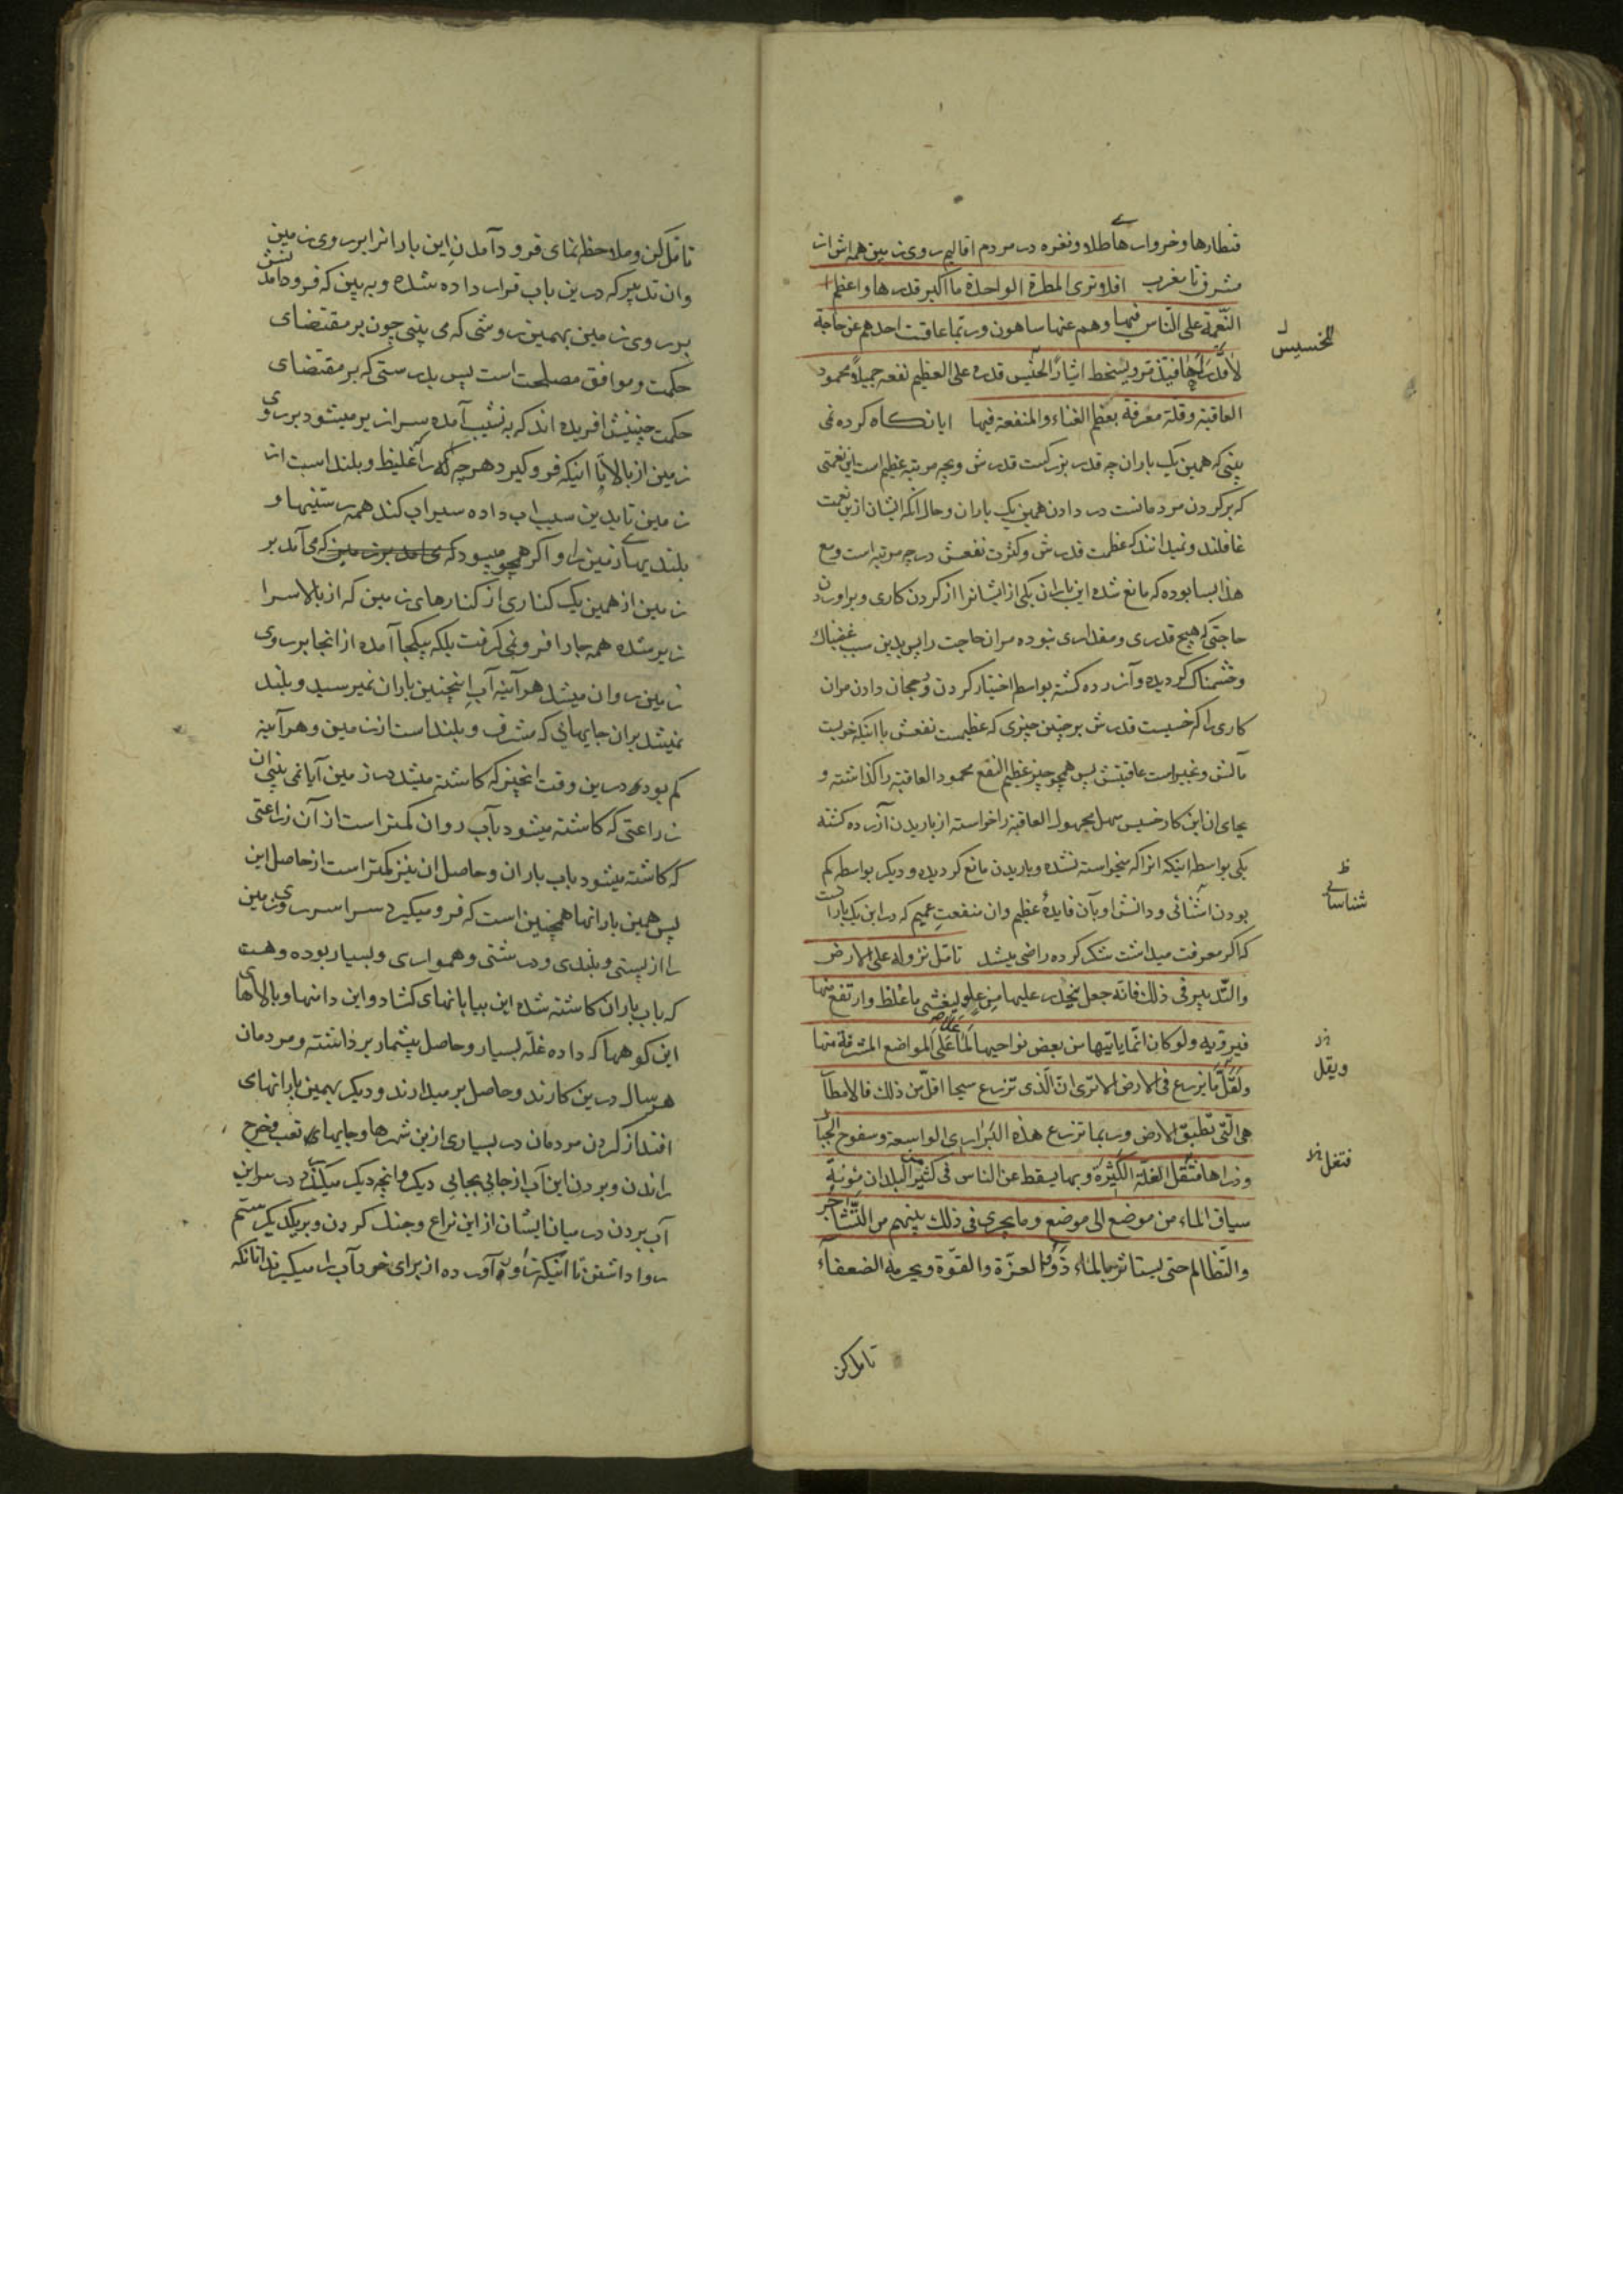 قنطارها و خروارهای طلا و نقره در مردم اقالیم روی زمین همه اش از
مشرق تا مغرب افلا تری المطرة الواحدة ما اکبر قدرها و اعظم
النّعمة علی النّاس فیها وهم عنها ساهون وربّما عاقت احدهم عن حاجة
لا قدر لها فیتذمّر ویسخط ایثاراً للخسیس قدره علی العظیم نفعه جمیلاً محمود
العاقبة وقلة معرفة بعظم الغناء والمنفعة فیها ایا نگاه کرده نمی
بینی که همین یک باران چه قدر بزرگست قدرش و بچه مرتبه عظیم است این نعمتی
که برگردن مردمانست در دادن همین یک باران و حال آنکه ایشان ازین نعمت
غافلند و نمیدانند که عظمت قدرش و کثرت نفعش در چه مرتبه است و مع
هذا بسا بوده که مانع شده این باران یکی از ایشانرا از کردن کاری و براوردن
حاجتی که هیچ قدری و مقداری نبوده مران حاجت را پس بدین سبب غضبناک
وخشمناک گردیده و آزرده گشته بواسطه اختیار کردن و رجحان دادن مران
کاری را که خسیست قدرش بر چنین چیزی که عظیمست نفعش با اینکه خوبست
مآلش و بخیر است عاقبتش پس همچو چیز عظیم النفع محمود العاقبة را گذاشته و
بجای ان این کار خسیس سهل مجهول العاقبة را خواسته از باریدن آزرده گشته
یکی بواسطه اینکه انرا که میخواسته نشده و باریدن مانع گردیده و دیگر بواسطه کم
بودن اشنائی و دانش او بآن فایدهٔ عظیم وان منفعت عمیم که در این یک بارانست
که اگر معرفت میداشت شکر کرده راضی میشد تامّل نزوله علی الارض
والتّدبیر فی ذلک فانّه جعل ینحدر علیها من علو لیغشی ما غلظ وارتفع منها
فیرویه ولو کان انّما یاتیها من بعض نواحیها لما علا علی المواضع المشرفة منها
ولقلّ ما یزرع فی الارض الا تری انّ الّذی تزرع سیحا اقلّ من ذلک فالامطار
هی الّتی تطبّق الارض وربما تزرع هذه البراری الواسعة وسفوح الجبال
وذراها فتقل الغلّة الکثیرة وبها یسقط عن الناس فی کثیر من البلدان مؤنة
سیاق الماء من موضع الی موضع وما یجری فی ذلک بینهم من التّشاجر
والتّظالم حتی یستاثر بالماء ذوو العزّة والقوّة ویحرمه الضعفاء
تامل کن
للخسیس
ظ
شناسائی
ویقل
فتغل
تامّل کن و ملاحظه نمای فرود آمدن این بارانرا بر روی زمین
وان تدبیر که درین باب قرار داده شده و به بین که فرود آمدنش
بر روی زمین بهمین روشی که می بینی چون بر مقتضای
حکمت و موافق مصلحت است پس بدرستی که بر مقتضای
حکمت چنینش افریده اند که به نشیب آمده سرازیر میشود بر روی
زمین از بالا تا اینکه فروگیرد هر چه را که غلیظ و بلند است از
زمین تا بدین سبب اب داده سیراب کند همه رستنیها و
بلندیهای زمین را و اگر همچو میبود که می آمد بر زمین که می آمد بر
زمین از همین یک کناری از کنارهای زمین که از بالا سرا
زیر شده همه جا را فرو نمی گرفت بلکه بیکجا آمده از انجا بر روی
زمین روان میشد هر آینه آب اینچنین باران نمیرسید و بلند
نمیشد بران جایهایی که مشرف و بلند است از زمین و هر آینه
کم بودی درین وقت انچیز که کاشته میشد در زمین آیا نمی بینی ان
زراعتی که کاشته میشود بآب روان کمتر است از آن زراعتی
که کاشته میشود باب باران و حاصل ان نیز کمتر است از حاصل این
پس همین بارانها همچنین است که فرو میگیرد سراسر روی زمین
را از پستی و بلندی و درشتی و همواری و بسیار بوده و هست
که باب باران کاشته شده این بیابانهای گشاد و این دامنها و بالاهای
این کوهها که داده غلّه بسیار و حاصل بیشمار برداشته و مردمان
هر سال درین کارند و حاصل بر میدارند و دیگر بهمین بارانهای
افتد از گردن مردمان در بسیاری ازین شهرها و جایهای تعب و خرج
راندن و بردن این آب از جایی بجایی دیگر و انچه دیگر میگذرد در سر این
آب بردن در میان ایشان از این نزاع و جنگ کردن و بر یکدیگر ستم
روا داشتن تا اینکه زور آورده از برای خود آب را میگیرند آنانکه